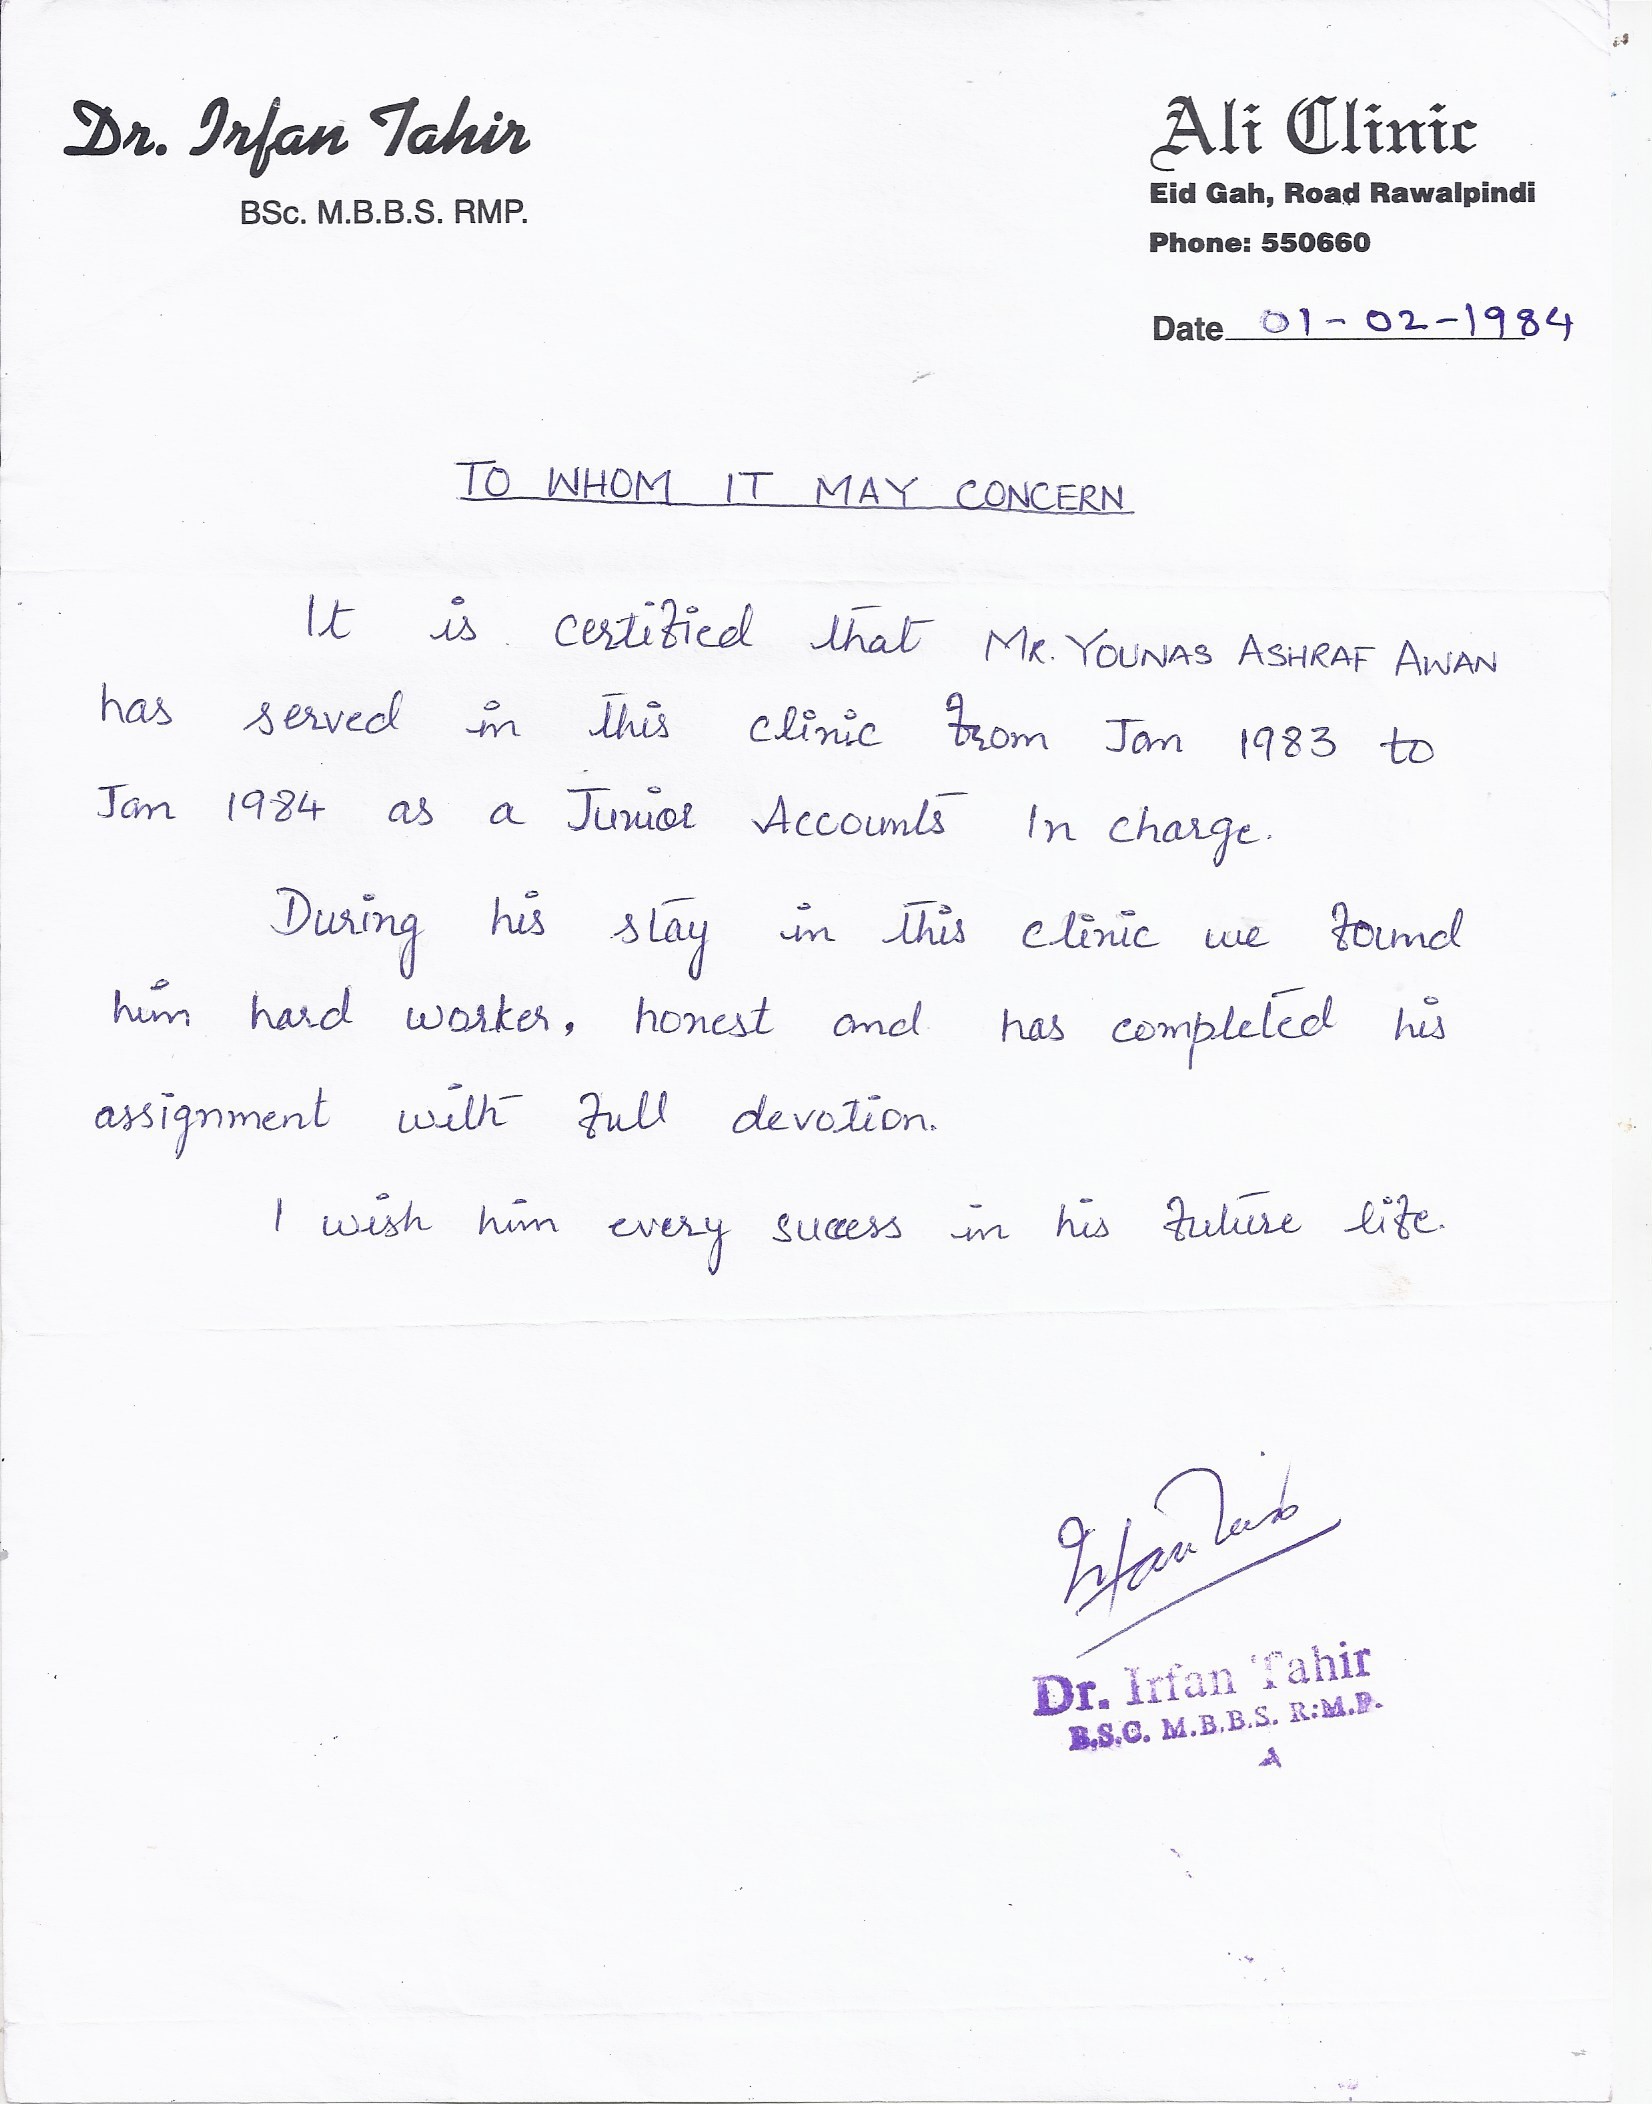 Dr. Irfan Tahir
BSc. M.B.B.S. RMP.
Ali Clinic
Eid Gah, Road Rawalpindi
Phone: 550660
Date 01-02-1984
TO WHOM IT MAY CONCERN
It is certified that MR. YOUNAS ASHRAF AWAN
has served in this clinic from Jan 1983 to
Jan 1984 as a Junior Accounts In charge.
During his stay in this clinic we found
him hard worker, honest and has completed his
assignment with full devotion.
I wish him every success in his future life.
Irfan Tahir
Dr. Irfan Tahir
B.S.C. M.B.B.S. R.M.P.
A